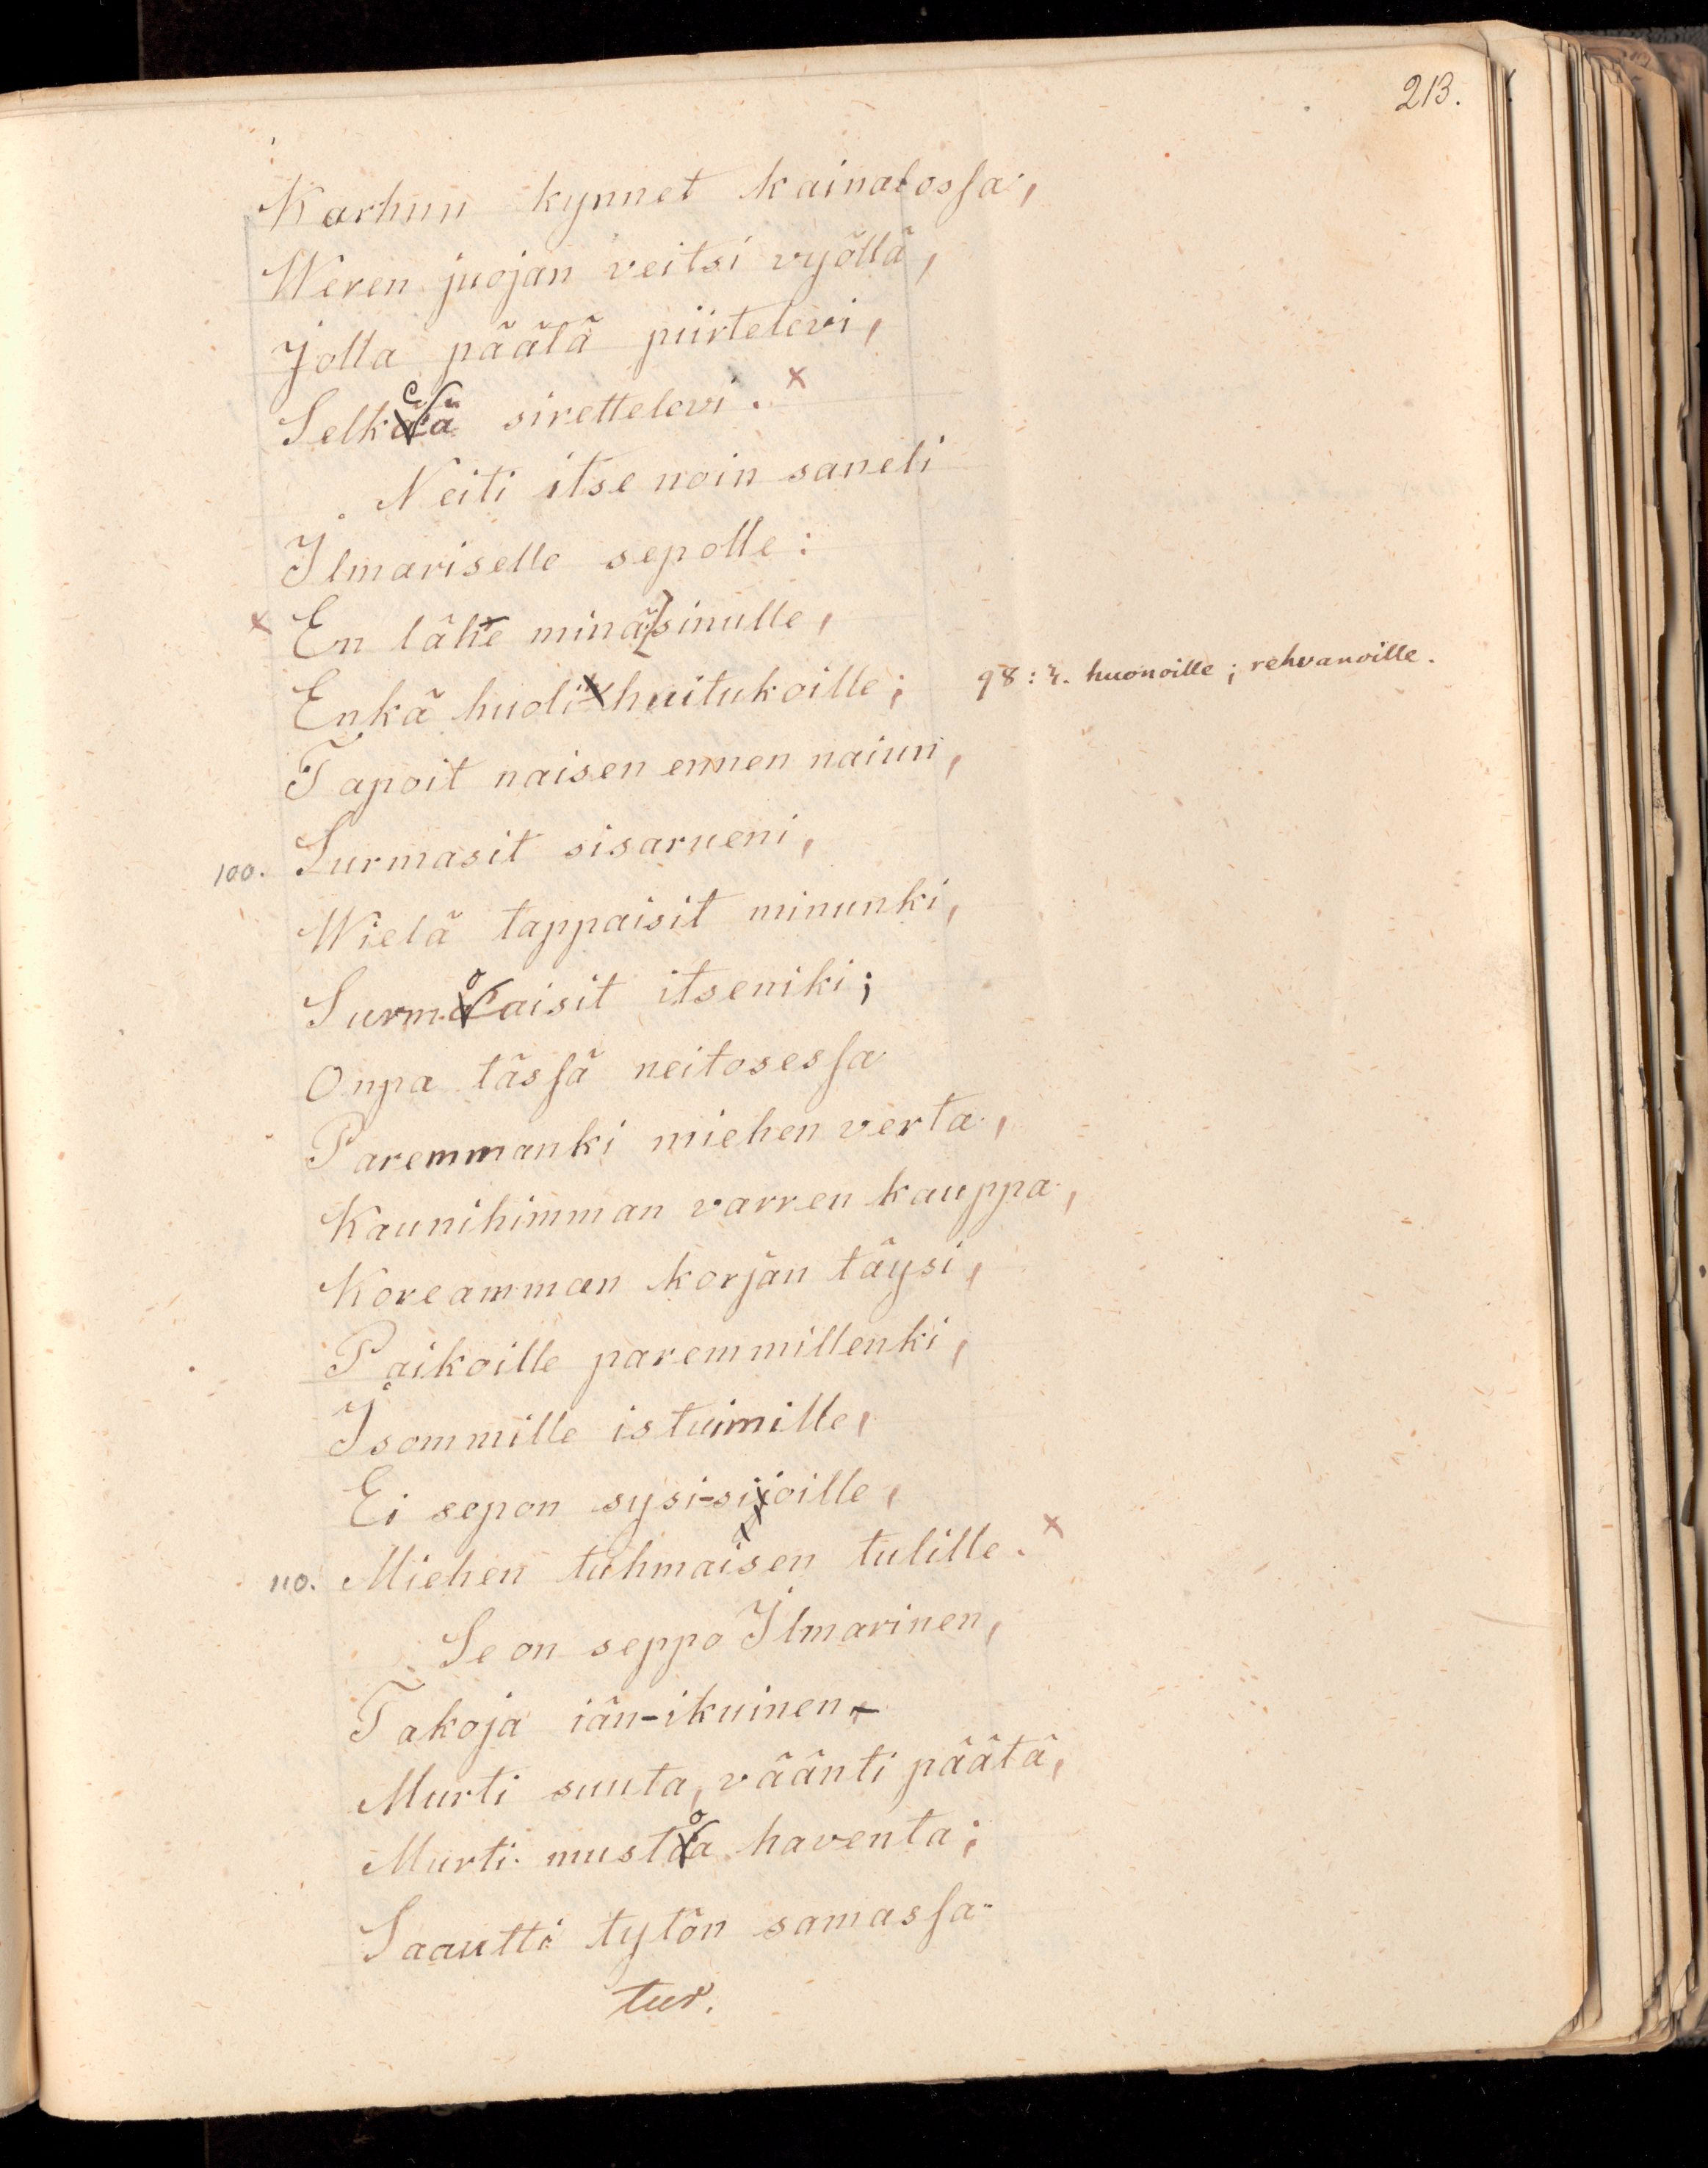 213.
Karhun kynnet kainalossa,
Weren juojan veitsi vyöllä,
Jolla päätä piirtelevi,
Selkeä sirettelevi. x
Neiti itse noin saneli
Ilmariselle sepolle:
x En lähe minä sinulle,
Enkä huoli huitukoille; 98: r. huonoille; rehvanoille.
Tapoit naisen ennen naiun,
100. Surmasit sisarueni,
Wielä tappaisit minunki,
Surmoaisit itseniki;
Onpa tässä neitosessa
Paremmanki miehen verta,
Kaunihimman varren kauppa,
Koreamman korjan täysi,
Paikoille paremmillenki,
Isommille istuimille,
Ei sepon sysi-sijoille,
110. Miehen tuhmaisen tulille. x
Se on seppo Ilmarinen,
Takoja iän-ikuinen
Murti suuta, väänti päätä,
Murti mustoa haventa;
Saautti tytön samassa
tur.